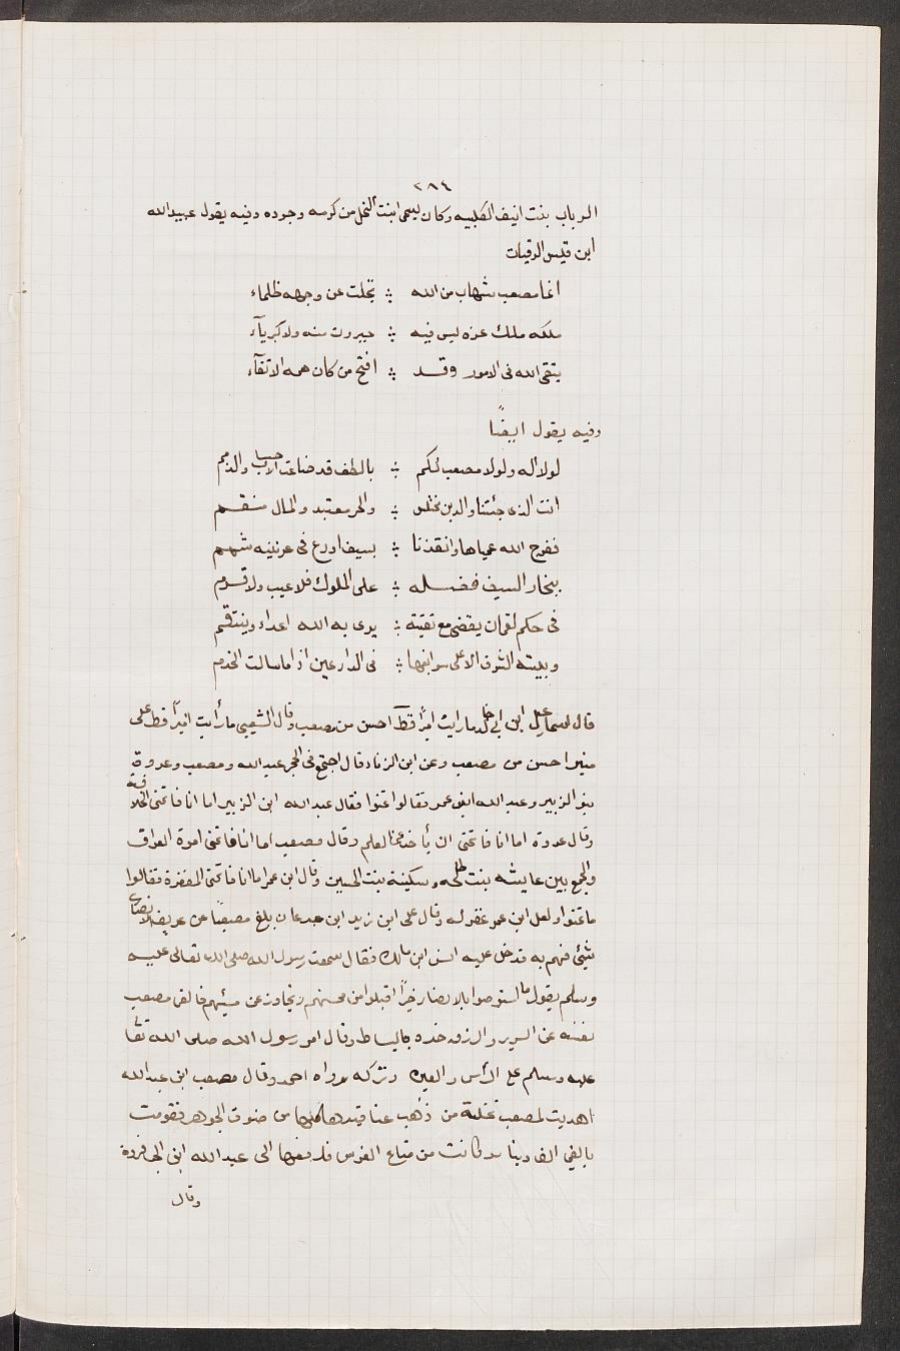 ٢٨٤
الرباب بنت انيف الكلبيه وكان يسمى ابنت النحل من كرمه وجوده وفيه يقول عبيد الله
ابن قيس الرقيات
انما مصعب شهاب من الله ؞ تجلت عن وجهه ظلماء
ملكه ملك عزه ليس فيه ؞ جبروت منه ولا كبريآء
يتقى الله فى الامور وقد ؞ افتح من كان همه الاتقآء
وفيه يقول ايضًا
لولا اله ولولا مصعب لكم ؞ بالطف قد ضاعت الاحساب والذمم
انت الذى جئتنا والدين ؞ والحر معتبد والمال منقسم
ففرج الله عمياها وانقذنا ؞ بسيف اورع فى عرنينه شمم
السيف فضله ؞ على الملوك فلا عيب ولا
فى حكم لقمان يقضى مع نقيته ؞ يرمى به الله اعداء وينتقم
وبيته الشرف الاعلى ؞ فى الدارعين اذا ما سالت الخدم
قال اسماعيل ابن ابى خالد ما رايت اميرًا قط احسن من مصعب وقال الشعبى ما رأيت اميرًا قط على
منبر احسن من مصعب وعن ابن الزناد قال اجتمع فى الحجر عبد الله ومصعب وعروة
بنو الزبير وعبد الله ابن عمر فقالوا تمنوا فقال عبد الله ابن الزبير اما انا فاتمنى الخلافة
وقال عروة اما انا فاتمنى ان يأخذ عنى العلم وقال مصعب اما انا فاتمنى امرة العراق
والجمع بين عايشه بنت طلحه وسكينة بنت الحسين وقال ابن عمر اما انا فاتمنى المغفرة فقالوا
ما تمنوا ولعل ابن عمر غفر له وقال على ابن زيد ابن جدعان بلغ مصعبًا عن عريف الانصار
شيئ فهم به فدخل عليه انس ابن مالك فقال سمعت رسول الله صلى الله تعالى عليه
وسلم يقول استوصوا بالانصار خيرًا اقبلوا من محسنهم وتجاوز عن مسيئهم فالقى مصعب
نفسه عن السرير والزق خده بالبساط وقال امر رسول الله صلى الله تعا
عليه وسلم على الرأس والعين وتركه رواه احمد وقال مصعب ابن عبد الله
اهديت لمصعب نخلة من ذهب من صنوف الجوهر فقومت
بالفى الف دينار وكانت من متاع الفرس فدفعها الى عبد الله ابن ابى فروة
وقال